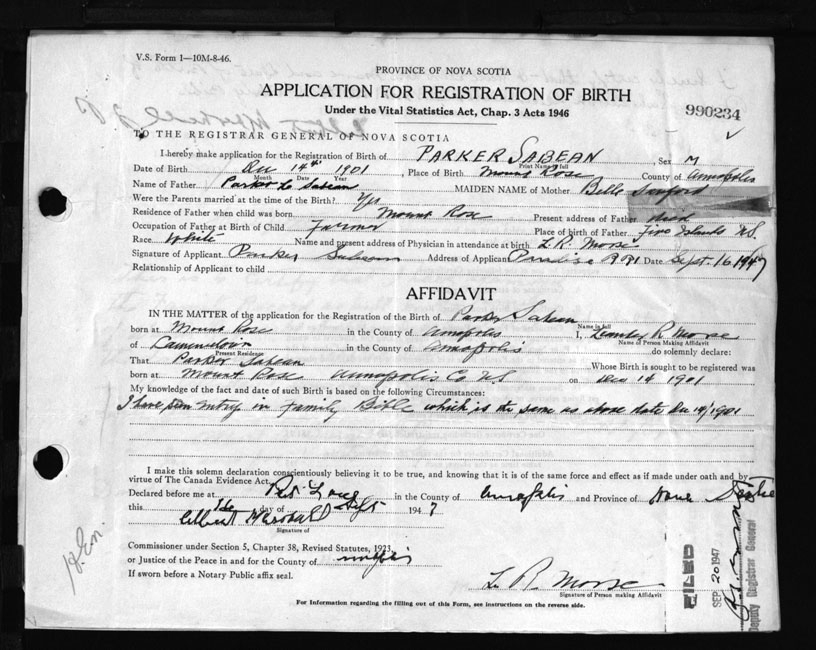 V.S. Form 1—10M-8-46.
PROVINCE OF NOVA SCOTIA
APPLICATION FOR REGISTRATION OF BIRTH
Under the Vital Statistics Act, Chap. 3 Acts 1946
990234
TO THE REGISTRAR GENERAL OF NOVA SCOTIA
I hereby make application for the Registration of Birth of PARKER SABEAN, Sex M
Print Name in full
Date of Birth Dec 14th 1901, Place of Birth Mount Rose County of Annapolis
Month Date Year
Name of Father Parker L. Sabean MAIDEN NAME of Mother Belle Sanford
Were the Parents married at the time of the Birth? Yes
Residence of Father when child was born Mount Rose Present address of Father dead
Occupation of Father at Birth of Child Farmer Place of birth of Father Five Islands N.S.
Race White Name and present address of Physician in attendance at birth L. R. Morse
Signature of Applicant Parker Sabean Address of Applicant Paradise R R 1 Date Sept. 16 1947
Relationship of Applicant to child
AFFIDAVIT
IN THE MATTER of the application for the Registration of the Birth of Parker Sabean
Name in full
born at Mount Rose in the County of Annapolis I, R. Morse
Name of Person Making Affidavit
of Lawrencetown in the County of Annapolis do solemnly declare:
Present Residence
That Parker Sabean Whose Birth is sought to be registered was
born at Mount Rose Annapolis Co N S on Dec 14 1901
My knowledge of the fact and date of such Birth is based on the following Circumstances:
I have seen entry in family Bible which is the same as above date Dec 14/1901
I make this solemn declaration conscientiously believing it to be true, and knowing that it is of the same force and effect as if made under oath and by
virtue of The Canada Evidence Act.
Declared before me at in the County of Annapolis and Province of Nova Scotia
this day of Sept 1947
Albert Marshall
Signature of
Commissioner under Section 5, Chapter 38, Revised Statutes, 1923,
or Justice of the Peace in and for the County of
If sworn before a Notary Public affix seal.
L. R. Morse
Signature of Person making Affidavit
For Information regarding the filling out of this Form, see instructions on the reverse side.
FILED
SEP 20 1947
Deputy Registrar General